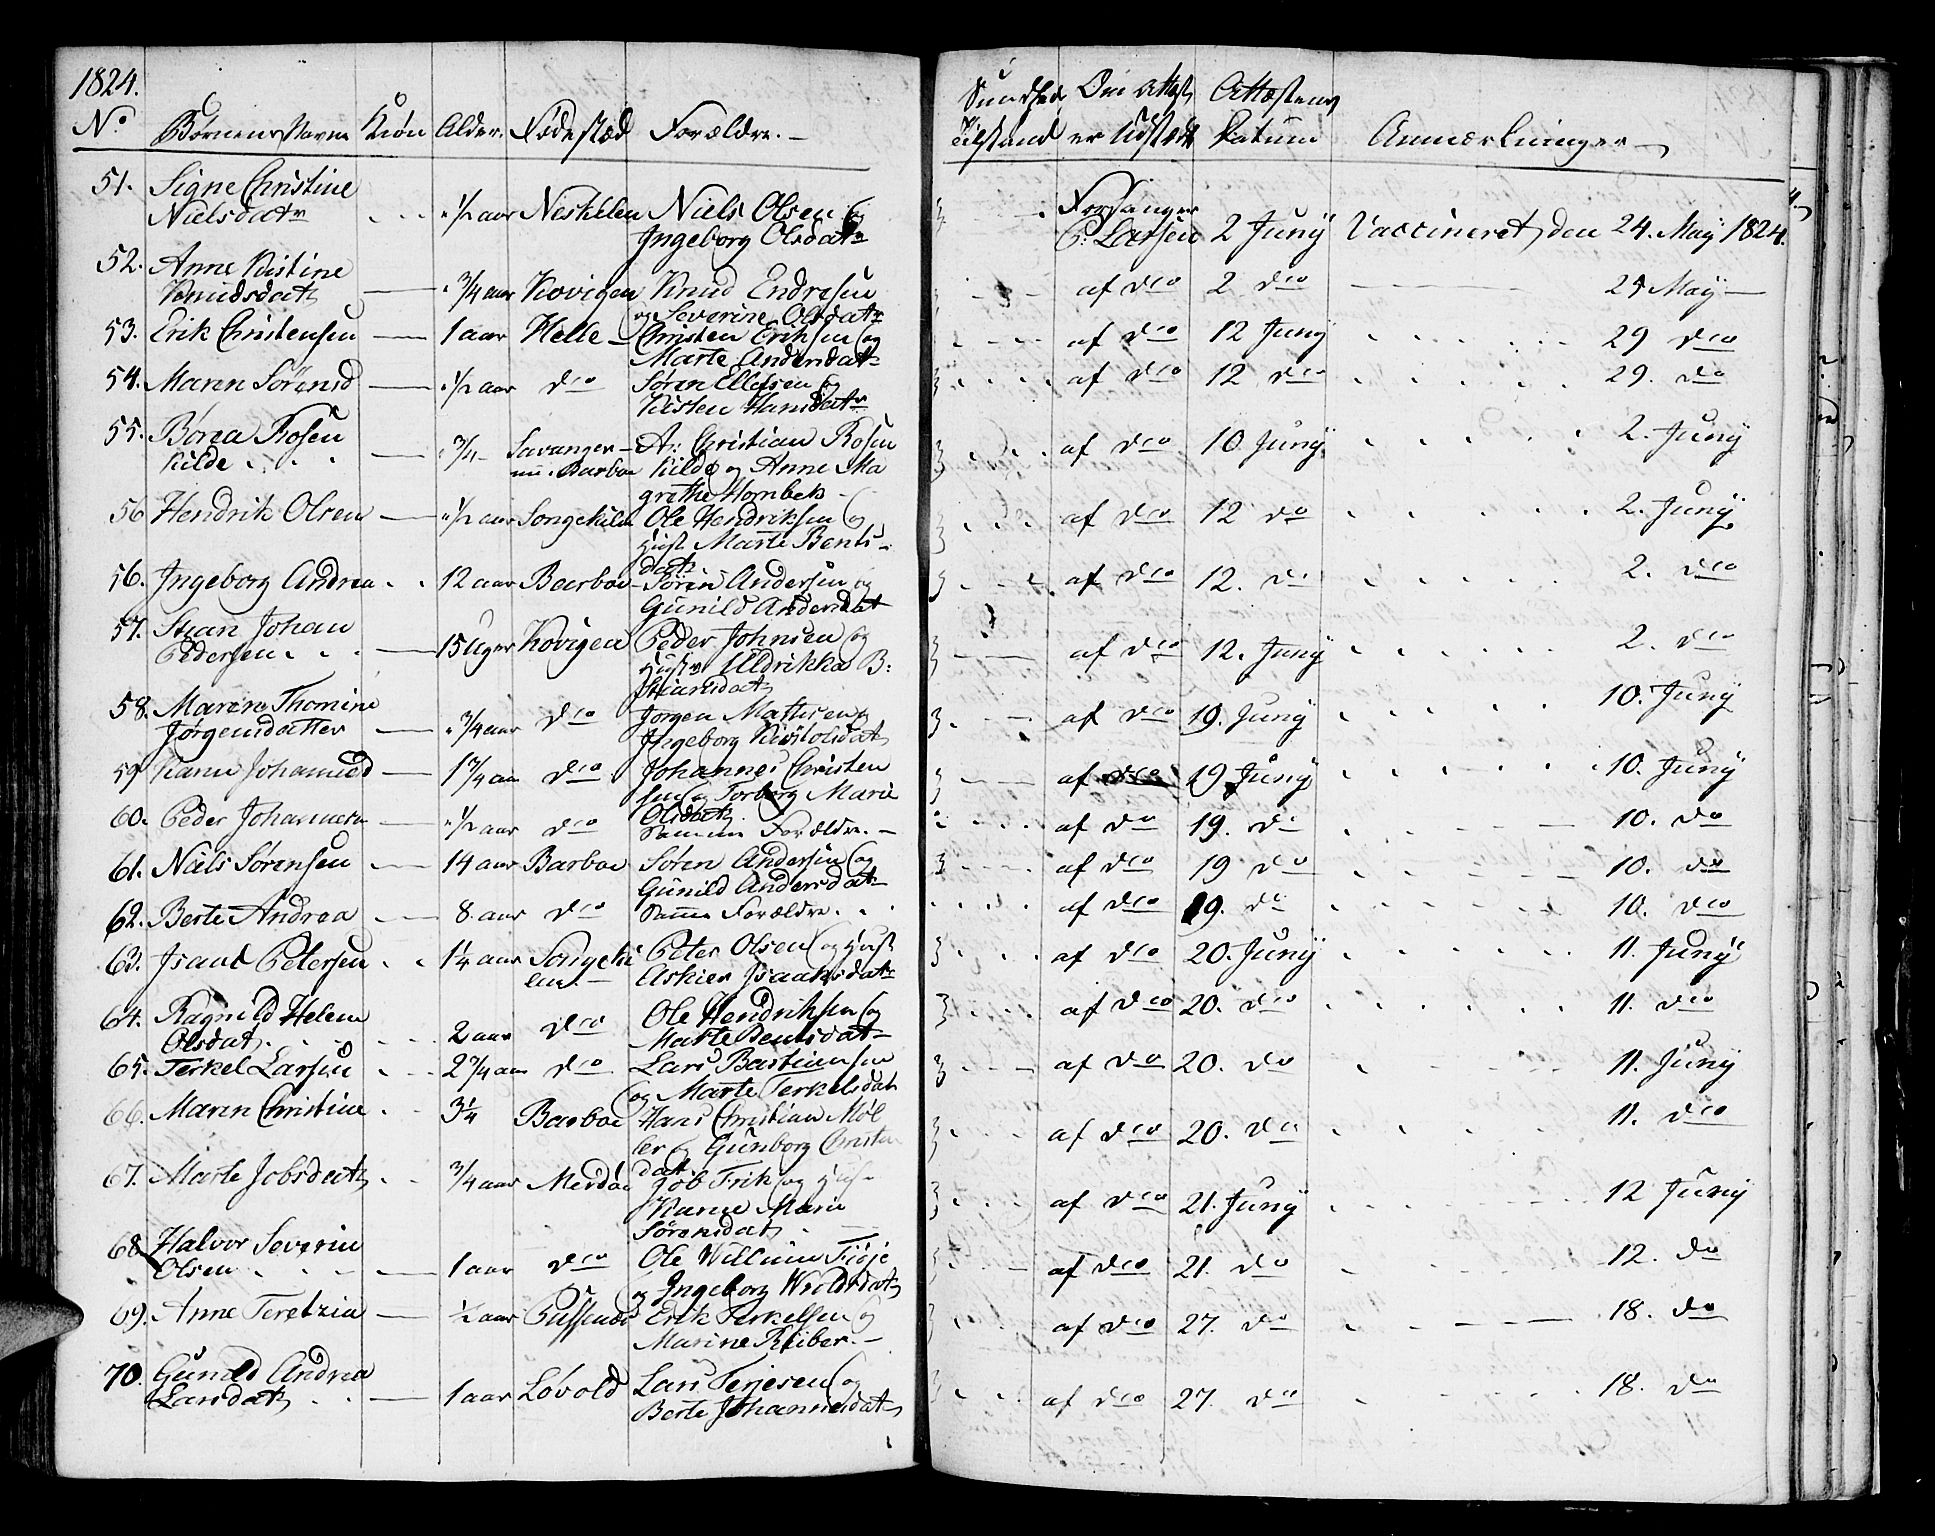 1824.
No Børnenes Navne Kiøn Alder. Fødested Forældre. Sundheds Tilstand Om Attest er Udstedt Attestens Datum Anmærkninger
51. Signe Christine
Nielsdatr 1/2 aar Neskilen Niels Olsen og
Ingeborg Olsdatr Forsanger
C: Larsen 2 Junÿ Vaccineret den 24. Maÿ 1824.
52. Anne Kistine
Knudsdatr 3/4 aar Kovigen Knud Endresen
og Severine Olsdatr af dco 2 dco 25 Maÿ
53. Erik Christensen 1 aar Helle Christen Eriksen og
Marte Andersdatr af dco 12 Junÿ 29 dco
54. Maren Sørensd 1/2 aar dco Søren Ellefsen og
Kisten Hansdatr af dco 12 dco 29. do
55. Børea Rosen
kilde 3/4 Barboe A: Christian Rosen
kilde og Anne Ma
grethe Hornbek af dco 10 Junÿ 2. Junÿ
56 Hendrik Olsen 1/2 aar Songekilen Ole Hendriksen og
Hust Marte Bents
datr af dco 12 do 2. Junÿ
56. Ingeborg Andrea 12 aar Barboe Sören Andersen og
Gunild Andersdat af dco 12. do 2. dco
57. Stian Johan
Pedersen 15 Uger Kovigen Peder Johnsen og
Hustr Uldrikka B:
Stiansdatr af dco 12. Junÿ 2. dco
58. Maren Thomine
Jørgensdatter 3/4 aar dco Jørgen Mathisen og
Ingeborg Kistolsdatr af dco 19. Junÿ 10. Junÿ
59 Karen Johannesd 1 3/4 aar dco Johannes Christen
sen og Torborg Marie
Olsdatr af dco 19 Junÿ 10. Junÿ
60. Peder Johannesen 1/2 aar do Samme Forældre. af do 19. do 10. do
61. Niels Sørensen 14 aar Barboe Søren Andersen og
Gunild Andersdat af dco 19 do 10. do
62. Berte Andrea 8. aar dco Samme Forældre. af dco 19. do 10. dco
63. Isaac Petersen 1 1/4 aar Songeki
len. Peter Olsen og Hust
Askier Isaaksdatr af dco 20. Junÿ 11. Junÿ
64. Ragnild Helene
Olsdatr. 2 aar dco Ole Hendriksen og
Marte Bentsdat af dco 20. dco 11. dco
65. Terkel Larsen 2 3/4 aar dco Lars Bastiansen
og Marte Terkelsdat af do 20. do 11. Junÿ
66. Maren Christine 3 1/4 Barboe Hans Christian Møl
ler og Gunborg Christen
dat. af dco 20. do 11. dco
67. Marte Jobsdatr 3/4 aar Merdøe Job Frik og Hus
Karen Marie
Sörensdatr af dco 21. Junÿ 12 Junÿ
68 Halvor Severin
Olsen 1 aar dco Ole Willum
og Ingeborg af dco 21. do 12. do
69. Anne Teretzia 1/2 aar Erik Terkelsen og
Marine Reiber. af dco 27. do 18. do
70. Gunild Andrea
Larsdatr 1 aar Lovold Lars Terjesen og
Berte Johannesdatr af dco 27. do 18. do